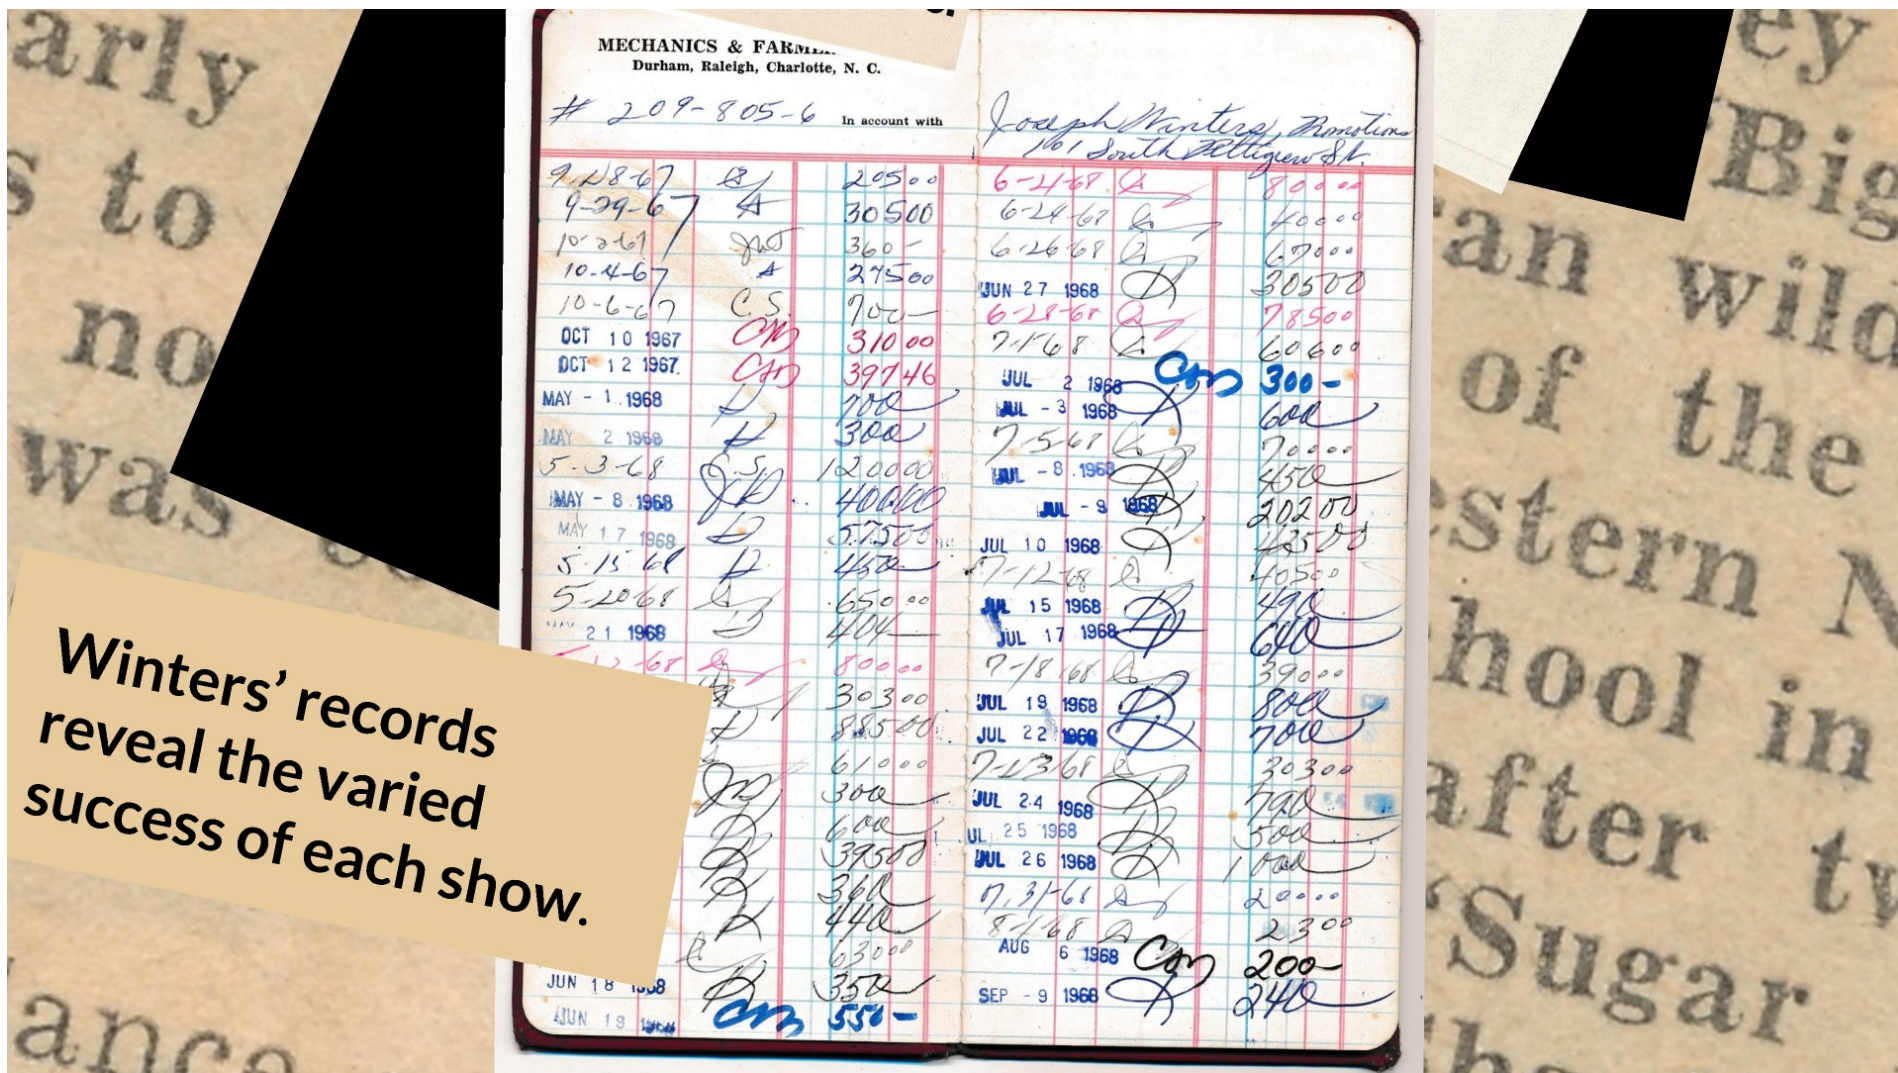 MECHANICS & FARME
Durham, Raleigh, Charlotte, N. C.
# 209-805-6 In account with
Joseph Winters, Promotions
101 South Pettigrew St.
9-28-67 205 00
9-29-67 305 00
10-2-67 360 -
10-4-67 275 00
10-6-67 C.S. 700 -
OCT 10 1967 CM 310 00
OCT 12 1967 CM 397 46
MAY - 1 1968 700
MAY 2 1968 300
5-3-68 1200 00
MAY - 8 1968 400 00
MAY 17 1968 575 00
5-15-68 450
5-20-68 650 00
MAY 21 1968 404
-68 800 00
303 00
885 00
610 00
300
600
395 00
360
440
630 00
JUN 18 1968 350
JUN 19 CM 550 -
6-21-68 800 00
6-24-68 400 00
6-26-68 670 00
JUN 27 1968 305 00
6-28-68 785 00
7-1-68 606 00
JUL 2 1968 CM 300 -
JUL - 3 1968 600
7-5-68 700 00
JUL - 8 1968 450
JUL - 9 1968 202 00
JUL 10 1968 435 00
7-12-68 405 00
JUL 15 1968 490
JUL 17 1968 640
7-18-68 390 00
JUL 19 1968 800
JUL 22 1968 700
7-23-68 303 00
JUL 24 1968 790
UL 25 1968 500
JUL 26 1968 1000
7-31-68 200 00
8-1-68 23 00
AUG 6 1968 CM 200 -
SEP - 9 1968 240
Winters' records
reveal the varied
success of each show.
arly
s to
no
was
ance
ey
"Big
an wild
of the
estern N
hool in
after tw
"Sugar